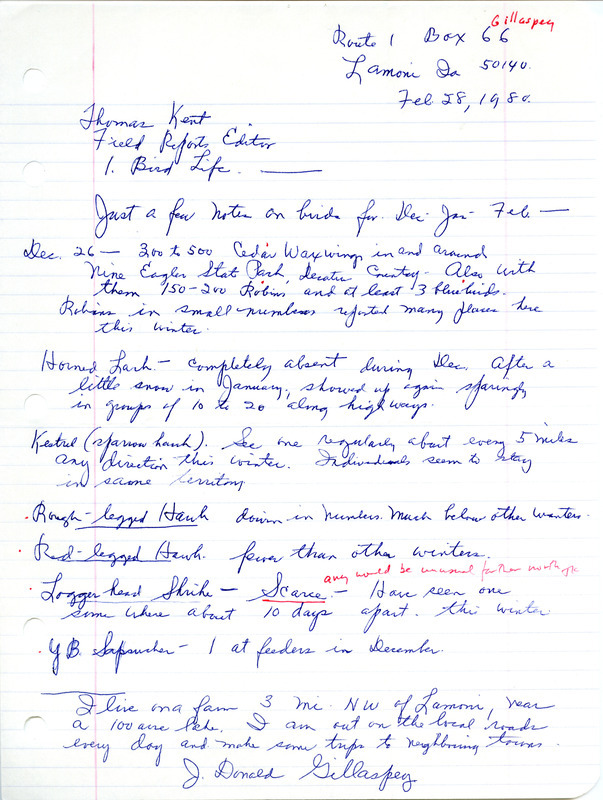 Gillaspey
Route 1 Box 66
Lamoni Ia 50140.
Feb 28, 1980.
Thomas Kent
Field Reports Editor
I. Bird Life.
Just a few notes on birds for Dec-Jan-Feb. —
Dec. 26 — 300 to 500 Cedar Waxwings in and around
Nine Eagles Stat Park, Decatur Country. Also with
them 150-200 Robins and at least 3 bluebirds.
Robins in small numbers reported many places here
this winter.
Horned Lark. — Completely absent during Dec. After a
little snow in January, showed up again sparingly
in groups of 10 to 20 along highways.
Kestrel (sparrow hawk). See one regularly about every 5 miles
any direction this winter. Individuals seem to stay
in same territory
Rough-legged Hawk down in numbers. Much below other winters.
Red-legged Hawk. fewer than other winters.
any would be unusual farther north
Loggerhead Shrike — Scarce. — Have seen one
some where about 10 days apart. this winter
YB. Sapsucker — 1 at feeders in December.
I live on a farm 3 mi. NW of Lamoni, near
a 100 acre lake. I am out on the local roads
every day and make some trips to neighboring towns.
J. Donald Gillaspey